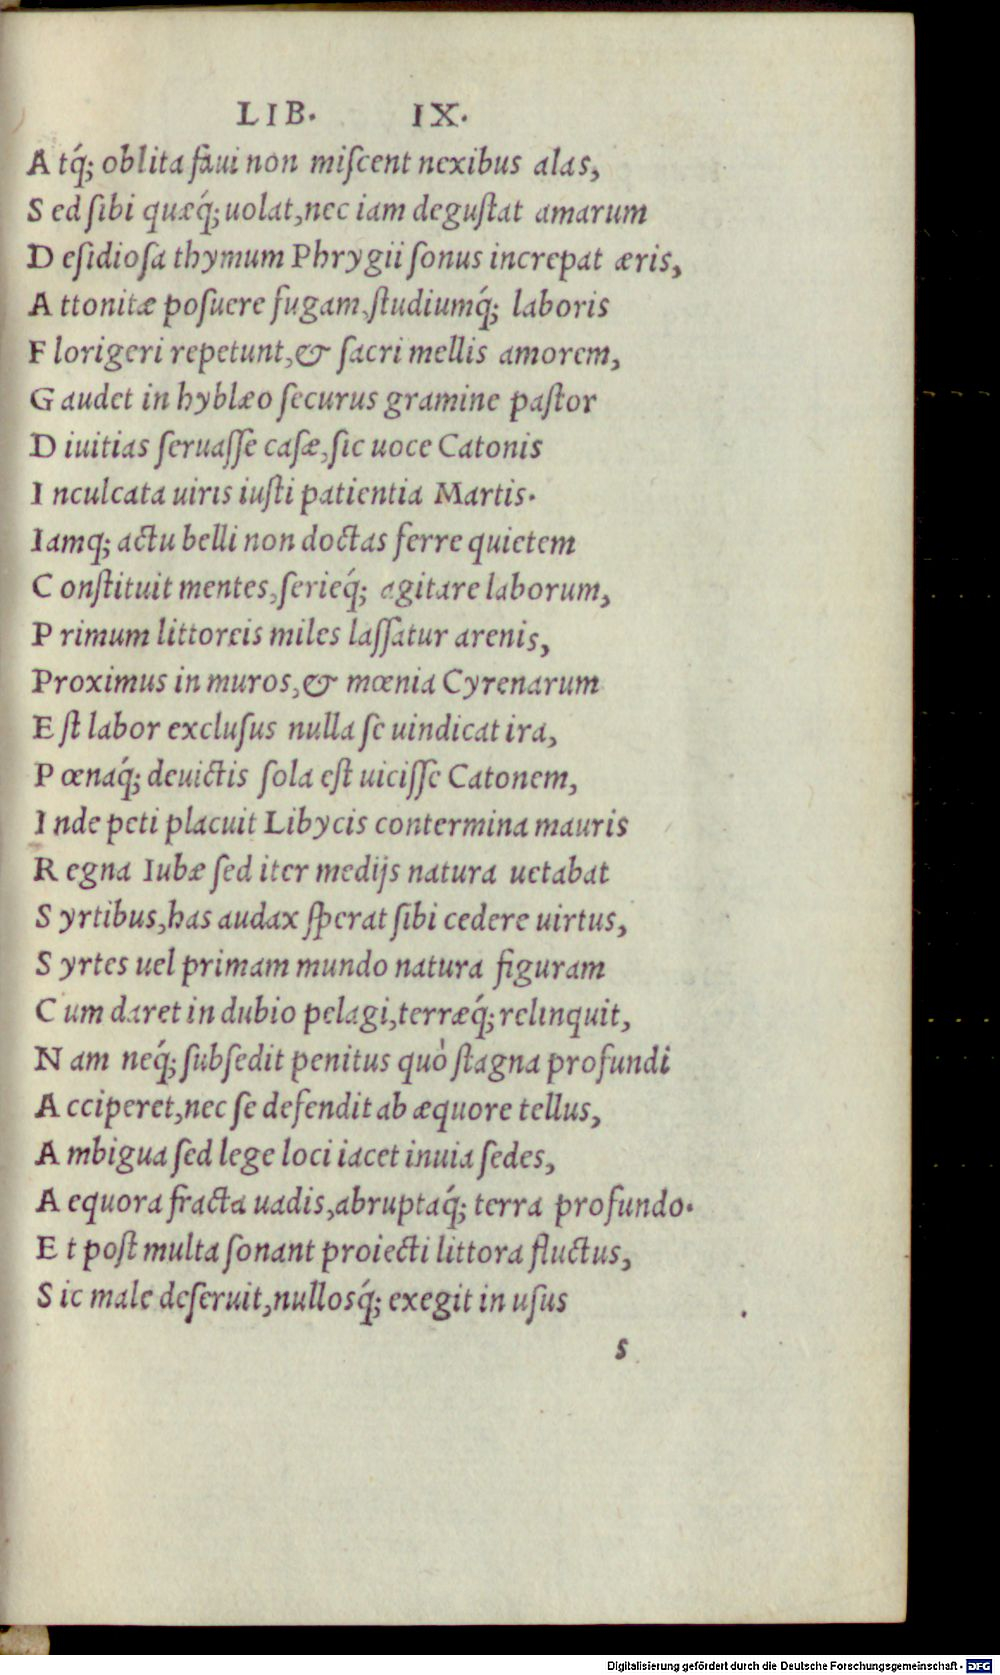 LIB. IX.
A tq́; oblita faui non miſcent nexibus alas,
S ed ſibi quæq́; uolat, nec iam deguſtat amarum
D eſidioſa thymum Phrygii ſonus increpat æris,
A ttonitæ poſuere fugam, ſtudiumq́; laboris
F lorigeri repetunt, & ſacri mellis amorem,
G audet in hyblæo ſecurus gramine paſtor
D iuitias ſeruaſſe caſæ, ſic uoce Catonis
I nculcata uiris iuſti patientia Martis.
Iamq; actu belli non doctas ferre quietem
C onſtituit mentes, ſerieq́; agitare laborum,
P rimum littoreis miles laſſatur arenis,
Proximus in muros, & mœnia Cyrenarum
E ſt labor excluſus nulla ſe uindicat ira,
P œnaq́; deuictis ſola eſt uiciſſe Catonem,
I nde peti placuit Libycis contermina mauris
R egna Iubæ ſed iter medijs natura uetabat
S yrtibus, has audax ſperat ſibi cedere uirtus,
S yrtes uel primam mundo natura figuram
C um daret in dubio pelagi, terræq́; relinquit,
N am neq́; ſubſedit penitus quò ſtagna profundi
A cciperet, nec ſe defendit ab æquore tellus,
A mbigua ſed lege loci iacet inuia ſedes,
A equora fracta uadis, abruptaq́; terra profundo.
E t poſt multa ſonant proiecti littora fluctus,
S ic male deſeruit, nullosq́; exegit in uſus
s
Digitalisierung gefördert durch die Deutsche Forschungsgemeinschaft - DFG